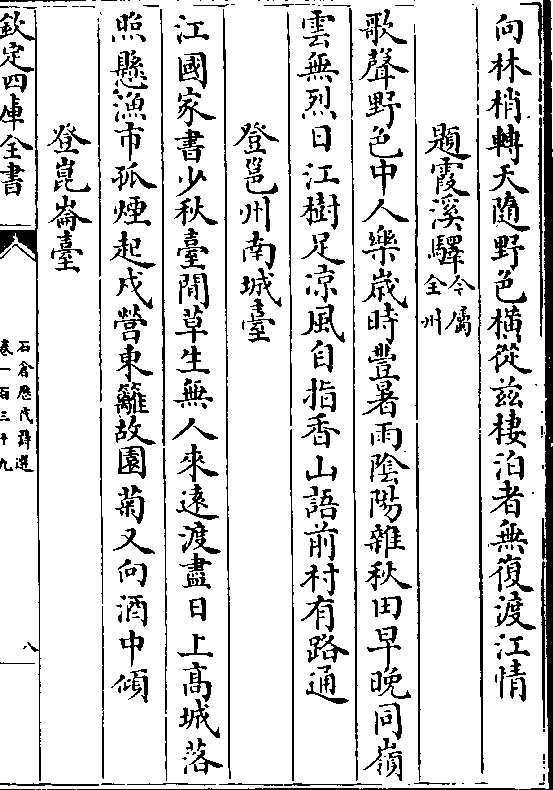 向林梢轉天隨野色横從兹棲泊者無復渡江情
題霞溪驛今屬全州
歌聲野色中人樂歲時豐暑雨陰陽雜秋田早晚同嶺
雲無烈日江樹足凉風自指香山語前村有路通
登邕州南城臺
江國家書少秋臺閒草生無人來遠渡盡日上高城落
照懸漁市孤煙起戍營東籬故園菊又向酒中傾
登崑崙臺
欽定四庫全書
石倉歷代詩選
卷一百三十九
八